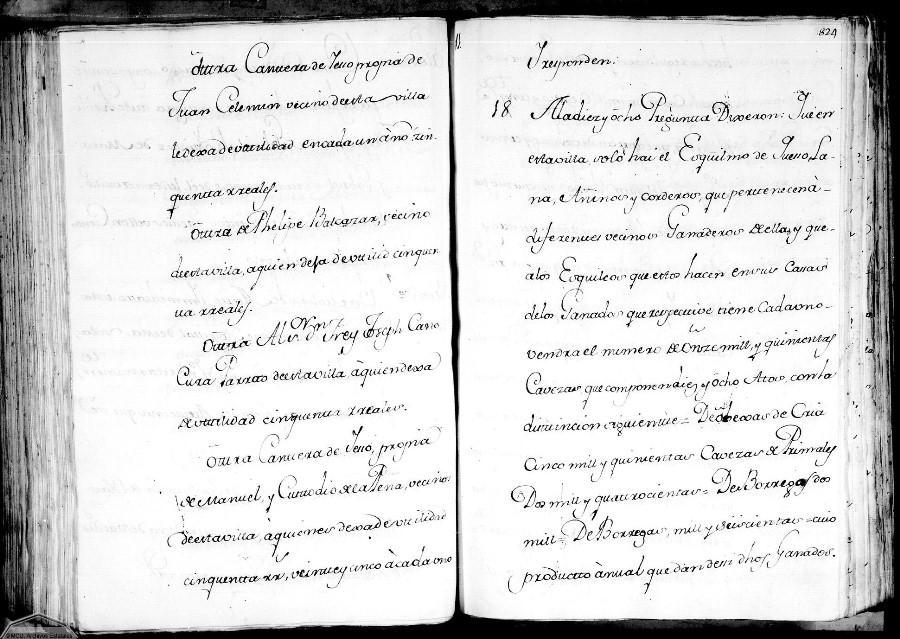 Ottra Cantera de Yeso propria de
Juan Celemin vecino de esta villa
le dexa de utilidad en cada un año zin-
quenta rreales.
Ottra de Phelipe Balcazar, vecino
de esta villa, a quien dexa de utilid cinquen
ta rreales.
Ottra Al Frey Joseph Cano
Cura Parroco de esta villa, à quien dexa
de utilidad cinquenta rreales.
Ottra Cantera de Yeso, propria
de Manuel, y Custodio de la Peña, vecinos
de esta villa, à quienes dexa de utilidad
cinquenta rrs, veinte y cinco à cada uno
824
Y responden.
18. A la diez y ocho Pregunta Dixeron: Que en
esta villa, solo hai el Esquilmo de Queso, La-
na, Añinos y Corderos, que pertenecen à-
diferentes vecinos Ganaderos de ella, y que-
à los Esquileos que estos hacen en sus Casas
de los Ganados que respective tiene Cada uno-
vendra el numero de Onze mill, y quinientas
Cavezas que componen diez y ocho Atos, con la
distincion siguiente = De obexas de Cria
Cinco mill y quinientas Cavezas de Primales
Dos mill y quatrocientas = De Borregos dos
mill = De Borregas, mill y seiscientas = cuio
producto ànual que dan de si dhos Ganados.
© MCD. Archivos Estatales